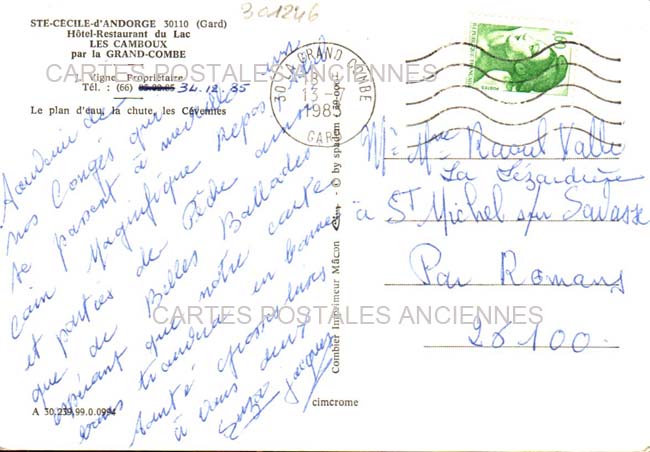 301246
STE-CÉCILE-d'ANDORGE 30110 (Gard)
Hôtel-Restaurant du Lac
LES CAMBOUX
par la GRAND-COMBE
J. Vigne, Propriétaire
Tél. : (66) 85.02.85 34.12.85
Le plan d'eau, la chute, les Cévennes
CARTES POSTALES ANCIENNES
30 LA GRAND COMBE
18 H
13
198
GARD
1,60
REPUBLIQUE FRANÇAISE
POSTES
Souvenir de
nos Congés qui
se passent à merveille
coin Magnifique Repos
et parties de Pêche ainsi
que de Belles Ballades
espérant que notre carte
vous trouvera en bonne
santé grosses bises
à vous deux
Suzy Jacques
Mr Mme Raoul Valle
La Lézardière
à St Michel sur Savasse
Par Romans
26100.
CARTES POSTALES ANCIENNES
Combier Imprimeur Mâcon
© by spadem
cimcrome
A 30.239.99.0.0994